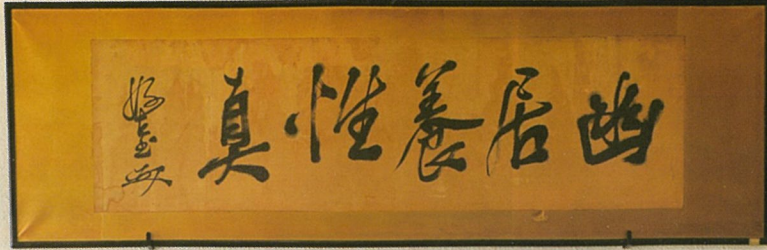 幽居養性真